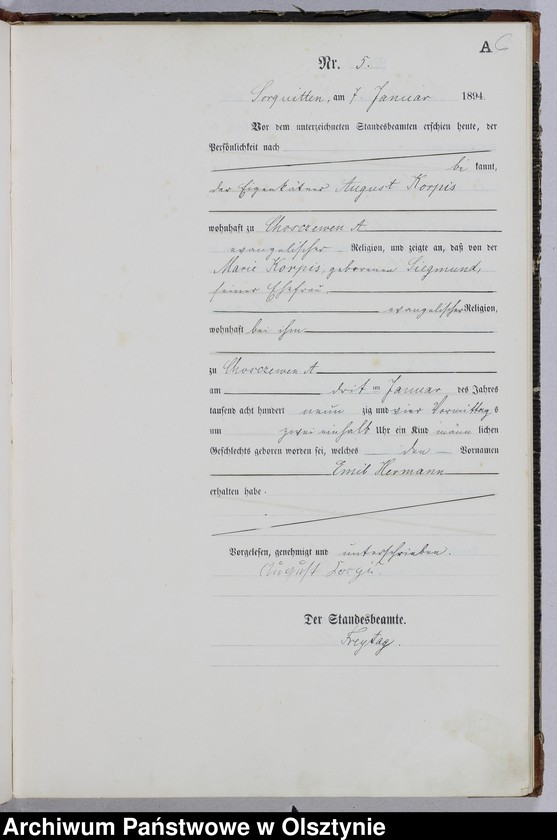 A 6
Nr. 5.
Sorquitten, am 7 Januar 1894.
Vor dem unterzeichneten Standesbeamten erschien heute, der
Persönlichkeit nach
bekannt,
der Eigenkätner August Korpis
wohnhaft zu Choszewen A
evangelischer Religion, und zeigte an, daß von der
Marie Korpis, geborenen Siegmund,
seiner Ehefrau
evangelischer Religion,
wohnhaft bei ihm
zu Choszewen A
am dritten Januar des Jahres
tausend acht hundert neunzig und vier Vormittags
um zwei einhalb Uhr ein Kind männlichen
Geschlechts geboren worden sei, welches den Vornamen
Emil Hermann
erhalten habe.
Vorgelesen, genehmigt und unterschrieben.
August
Der Standesbeamte.
Freytag.
Archiwum Państwowe w Olsztynie